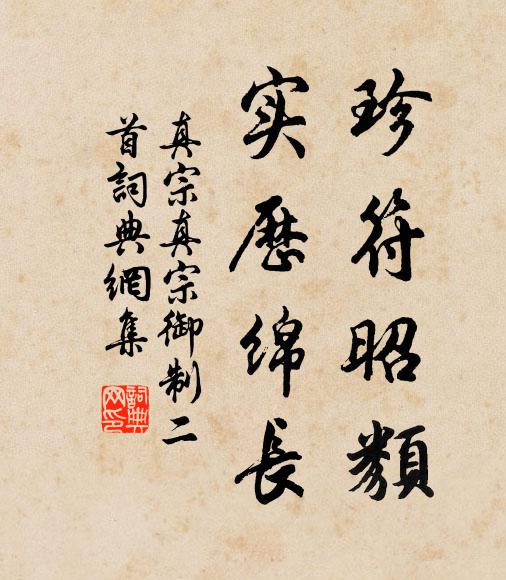 珍符昭類
实歷绵长
真宗真宗御制二
首詞典網集
詞典
网印